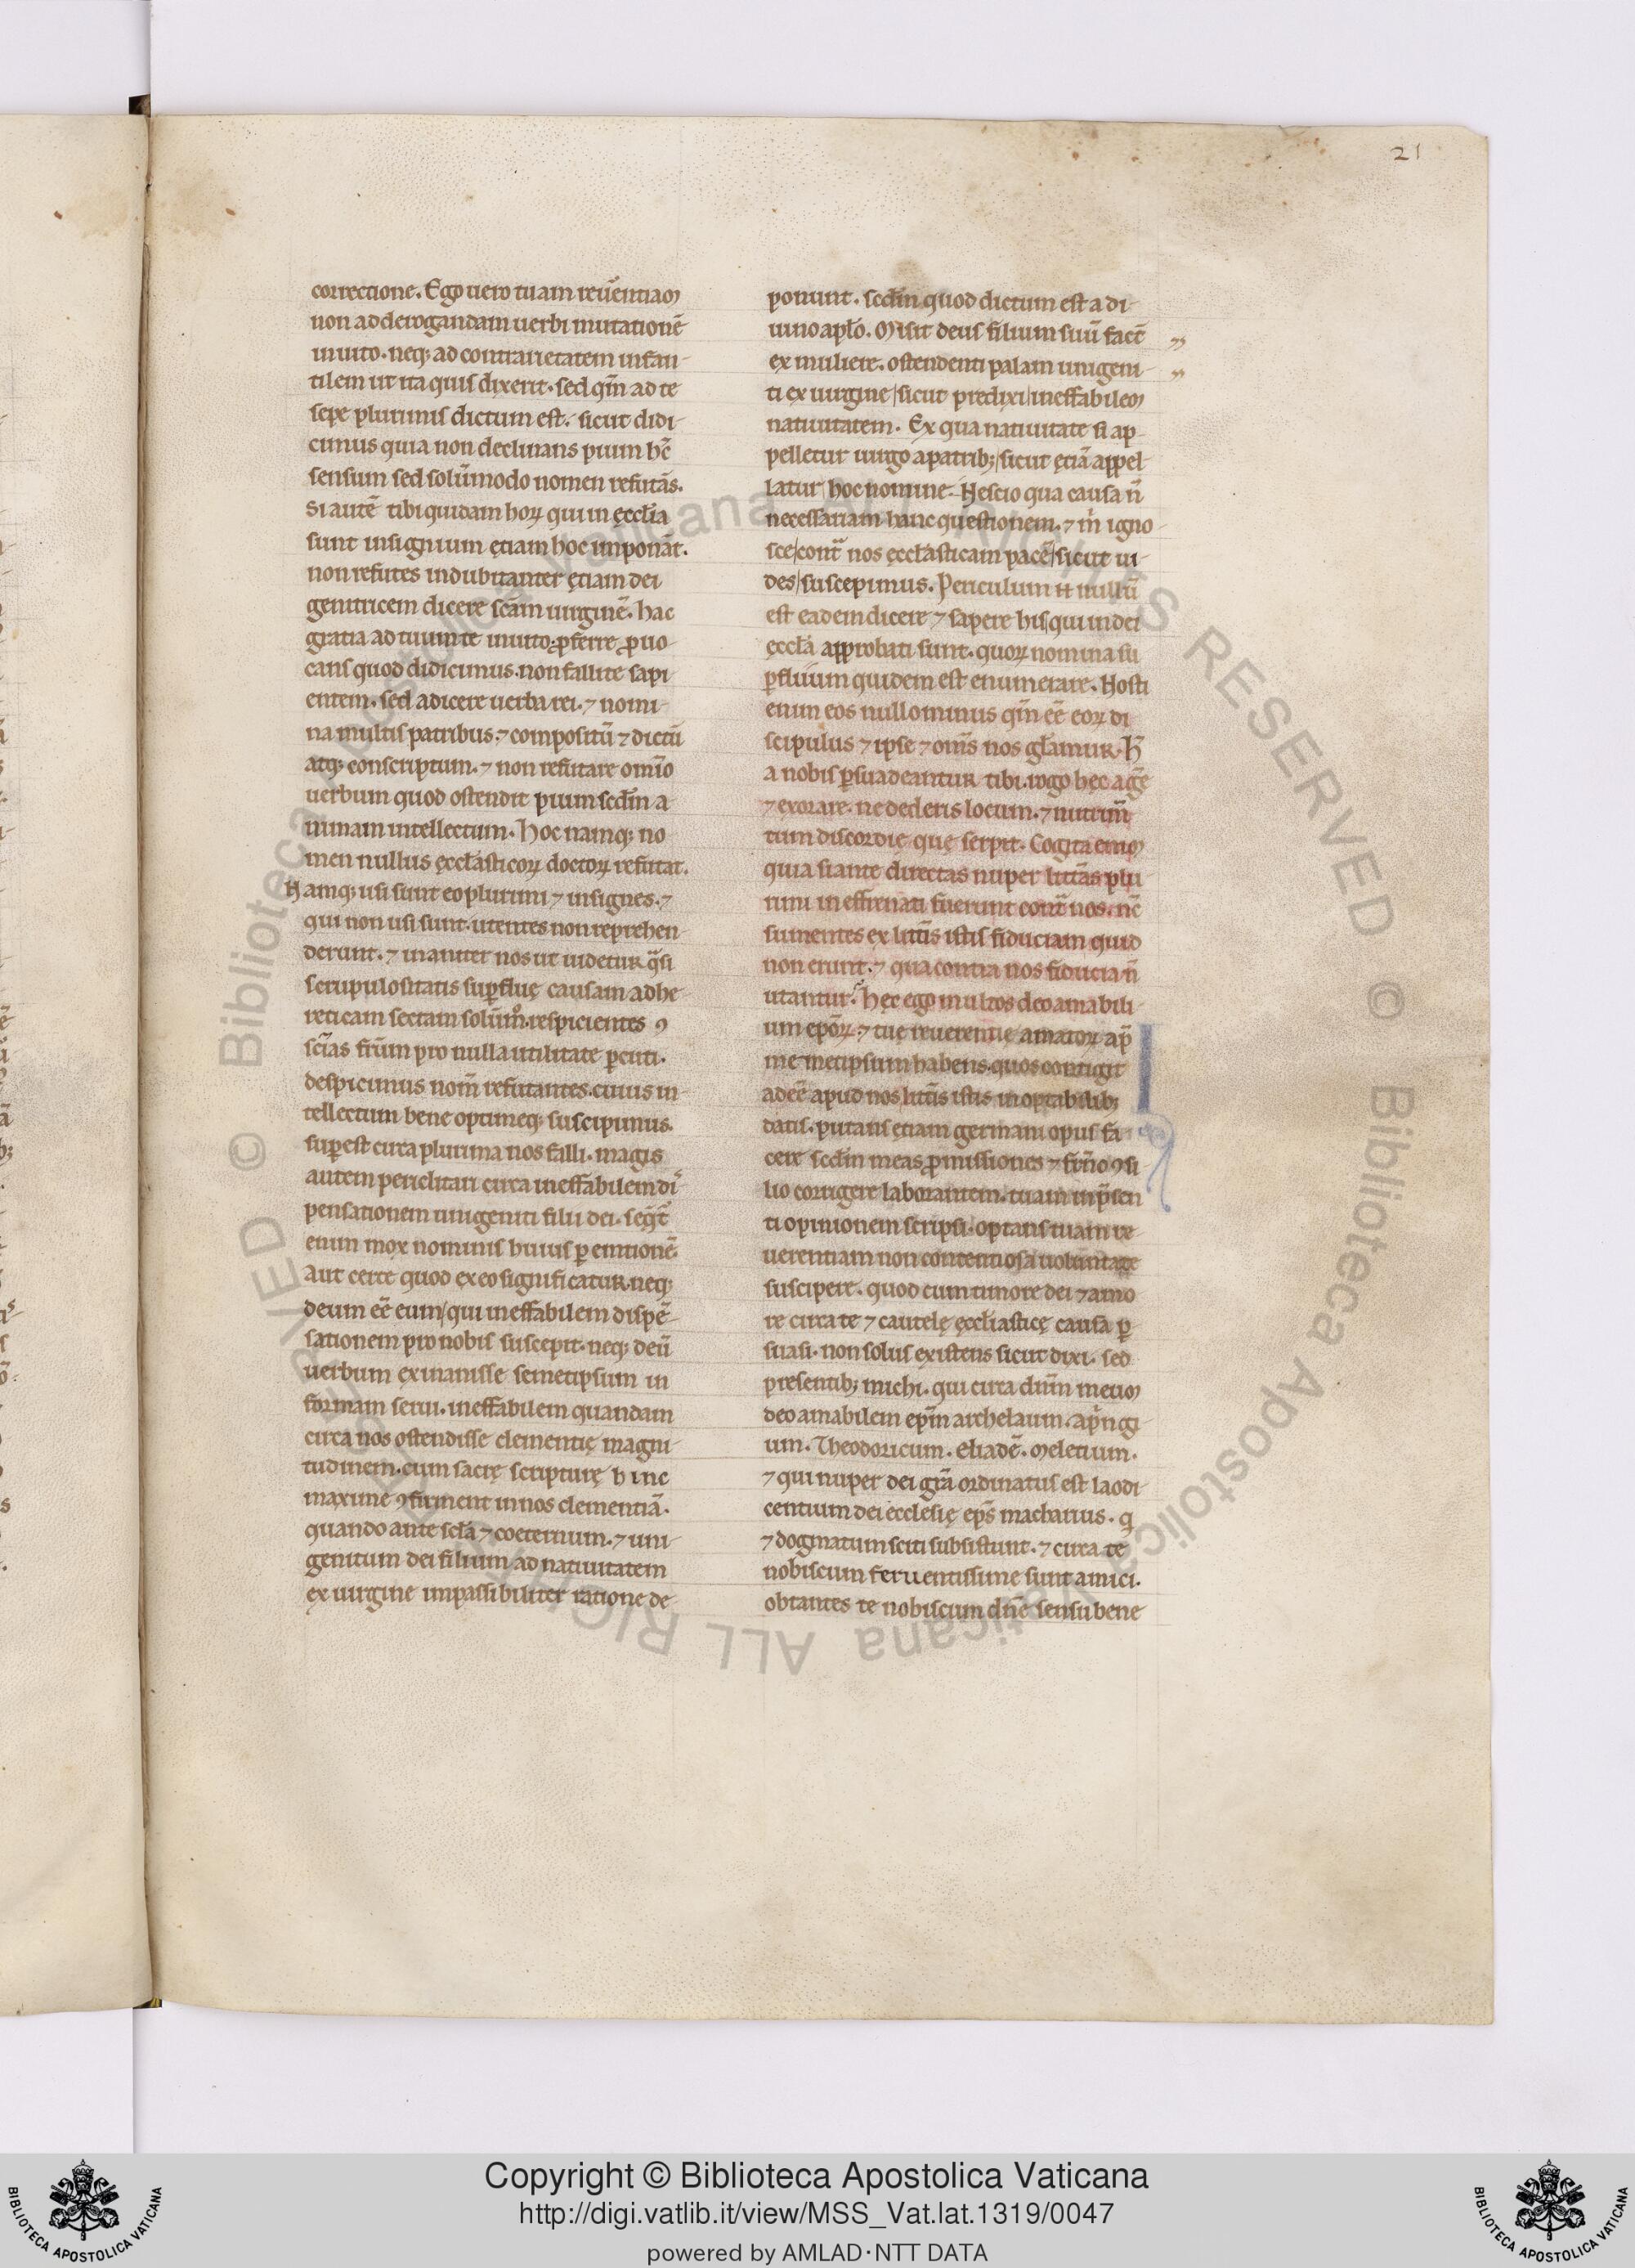 21
correctione. Ego uero tuam reu̾entiam
non ad derogandam uerbi mutationē
inuito. neq; ad contrarietatem infan-
tilem ut ita quis dixerit. sed qm̄ ad te
sepe plurimis dictum est. sicut didi-
cimus quia non declinans pium hc̄
sensum sed solūmodo nomen refutās.
Si autē tibi quidam hoꝝ qui in ęccl̄ia
sunt insignium ętiam hoc imponāt.
non refutes indubitanter ętiam dei
genitricem dicere scām uirginē. hac
gratia ad tuum te inuito ꝓferre ꝓuo-
cans quod didicimus. non fallit te sapi
entem. sed adicere uerba rei. ⁊ nomi-
na multis patribus. ⁊ compositū ⁊ dictū
atq; conscriptum. ⁊ non refutare om̄io
uerbum quod ostendit pium scd̄m a
nimam intellectum. Hoc namq; no
men nullus ęccl̄asticoꝝ doctoꝝ refutat.
Namq; usi sunt eo plurimi ⁊ insignes. ⁊
qui non usi sunt. utentes non reprehen-
derunt. ⁊ inaniter nos ut uidetur q̄si
scrupulositatis suꝑfluę causam ad he-
reticam sectam solūm̊. respicientes ꝯ
scīas fr̄um pro nulla utilitate ꝑcuti.
despicimus nom̄ refutantes. cuius in-
tellectum bene optimeq; suscipimus.
suꝑest circa plurima nos falli. magis
autem periclitari circa ineffabilem di
pensationem unigeniti filii dei. seqt̄
enim mox nominis huius ꝑemtionē.
Aut certe quod ex eo significatur. neq;
deum eē eum/qui ineffabilem dispē-
sationem pro nobis suscepit. neq; deū
uerbum exinanisse semetipsum in
formam serui. ineffabilem quandam
circa nos ostendisse clementię magni-
tudinem. cum sacrę scripturę hinc
maxime ꝯfirment in nos clementiā.
quando ante scl̄a ⁊ coeternum. ⁊ uni-
genitum dei filium ad natiuitatem
ex uirgine impassibiliter ratione de
ponunt. scd̄m quod dictum est a di-
uino apl̄o. Misit deus filium suū factē
ex muliere. ostendenti palam unigeni-
ti ex uirgine/sicut predixi/ineffabilem
natiuitatem. Ex qua natiuitate si ap-
pelletur uirgo a patrib;/sicut ętiā appel-
latur/hoc nomine. Nescio qua causa n̄
necessariam hanc questionem. ⁊ m̄ igno-
sce/cont̄ nos ęccl̄asticam pacē/sicut ui-
des/suscepimus. Periculum n̄ nullū
est eadem dicere ⁊ sapere his/qui in dei
ęccl̄a approbati sunt. quoꝝ nomina su
ꝑfluum quidem est enumerare. Nosti
enim eos nullo minus qm̄ eē eoꝝ di
scipulus ⁊ ipse ⁊ om̄s nos gl̄amur. H̄
a nobis ꝑsuadeantur tibi. rogo hęc agē
⁊ exorare. ne dederis locum. ⁊ nutrim̄
tum discordię quę serpit. Cogita enim
quia si ante directas nuper litt̄as plu
rimi in effrenati fuerunt cont̄ nos. nē
sumentes ex litt̄is istis fiduciam quid
non erunt. ⁊ qua contra nos fiducia n̄
utantur? hęc ego multos deo amabili
um ep̄oꝝ. ⁊ tuę reuerentię amatoꝝ ap̄
me metipsum habens. quos contigit
adeē apud nos litt̄is istis inoptabilib;
datis. putans ętiam germani opus fa
cere scd̄m meas ꝓmissiones ⁊ frn̄o ꝯsi
lio corrigere laborantem. tuam in p̄sen
ti opinionem scripsi. optans tuam re
uerentiam non contentiosa uoluntate
suscipere. quod cum timore dei ⁊ amo
re circa te ⁊ cautelę ęccl̄iasticę causa ꝑ
suasi. non solus existens sicut dixi. sed
presentib; michi. qui circa dn̄m meum
deo amabilem ep̄m archelaum. ap̄ngi
um. Theodoricum. eliadē. Meletium.
⁊ qui nuper dei gr̄a ordinatus est laodi
centium dei ecclesię ep̄s macharius. q̄
⁊ dogmatum sciti subsistunt. ⁊ circa te
nobiscum feruentissime sunt amici.
obtantes te nobiscum dn̄e sensu bene
Copyright © Biblioteca Apostolica Vaticana
http://digi.vatlib.it/view/MSS_Vat.lat.1319/0047
powered by AMLAD·NTT DATA
BIBLIOTECA APOSTOLICA VATICANA
BIBLIOTECA APOSTOLICA VATICANA
© Biblioteca Apostolica Vaticana ALL RIGHTS RESERVED © Biblioteca Apostolica Vaticana ALL RIGHTS RESERVED